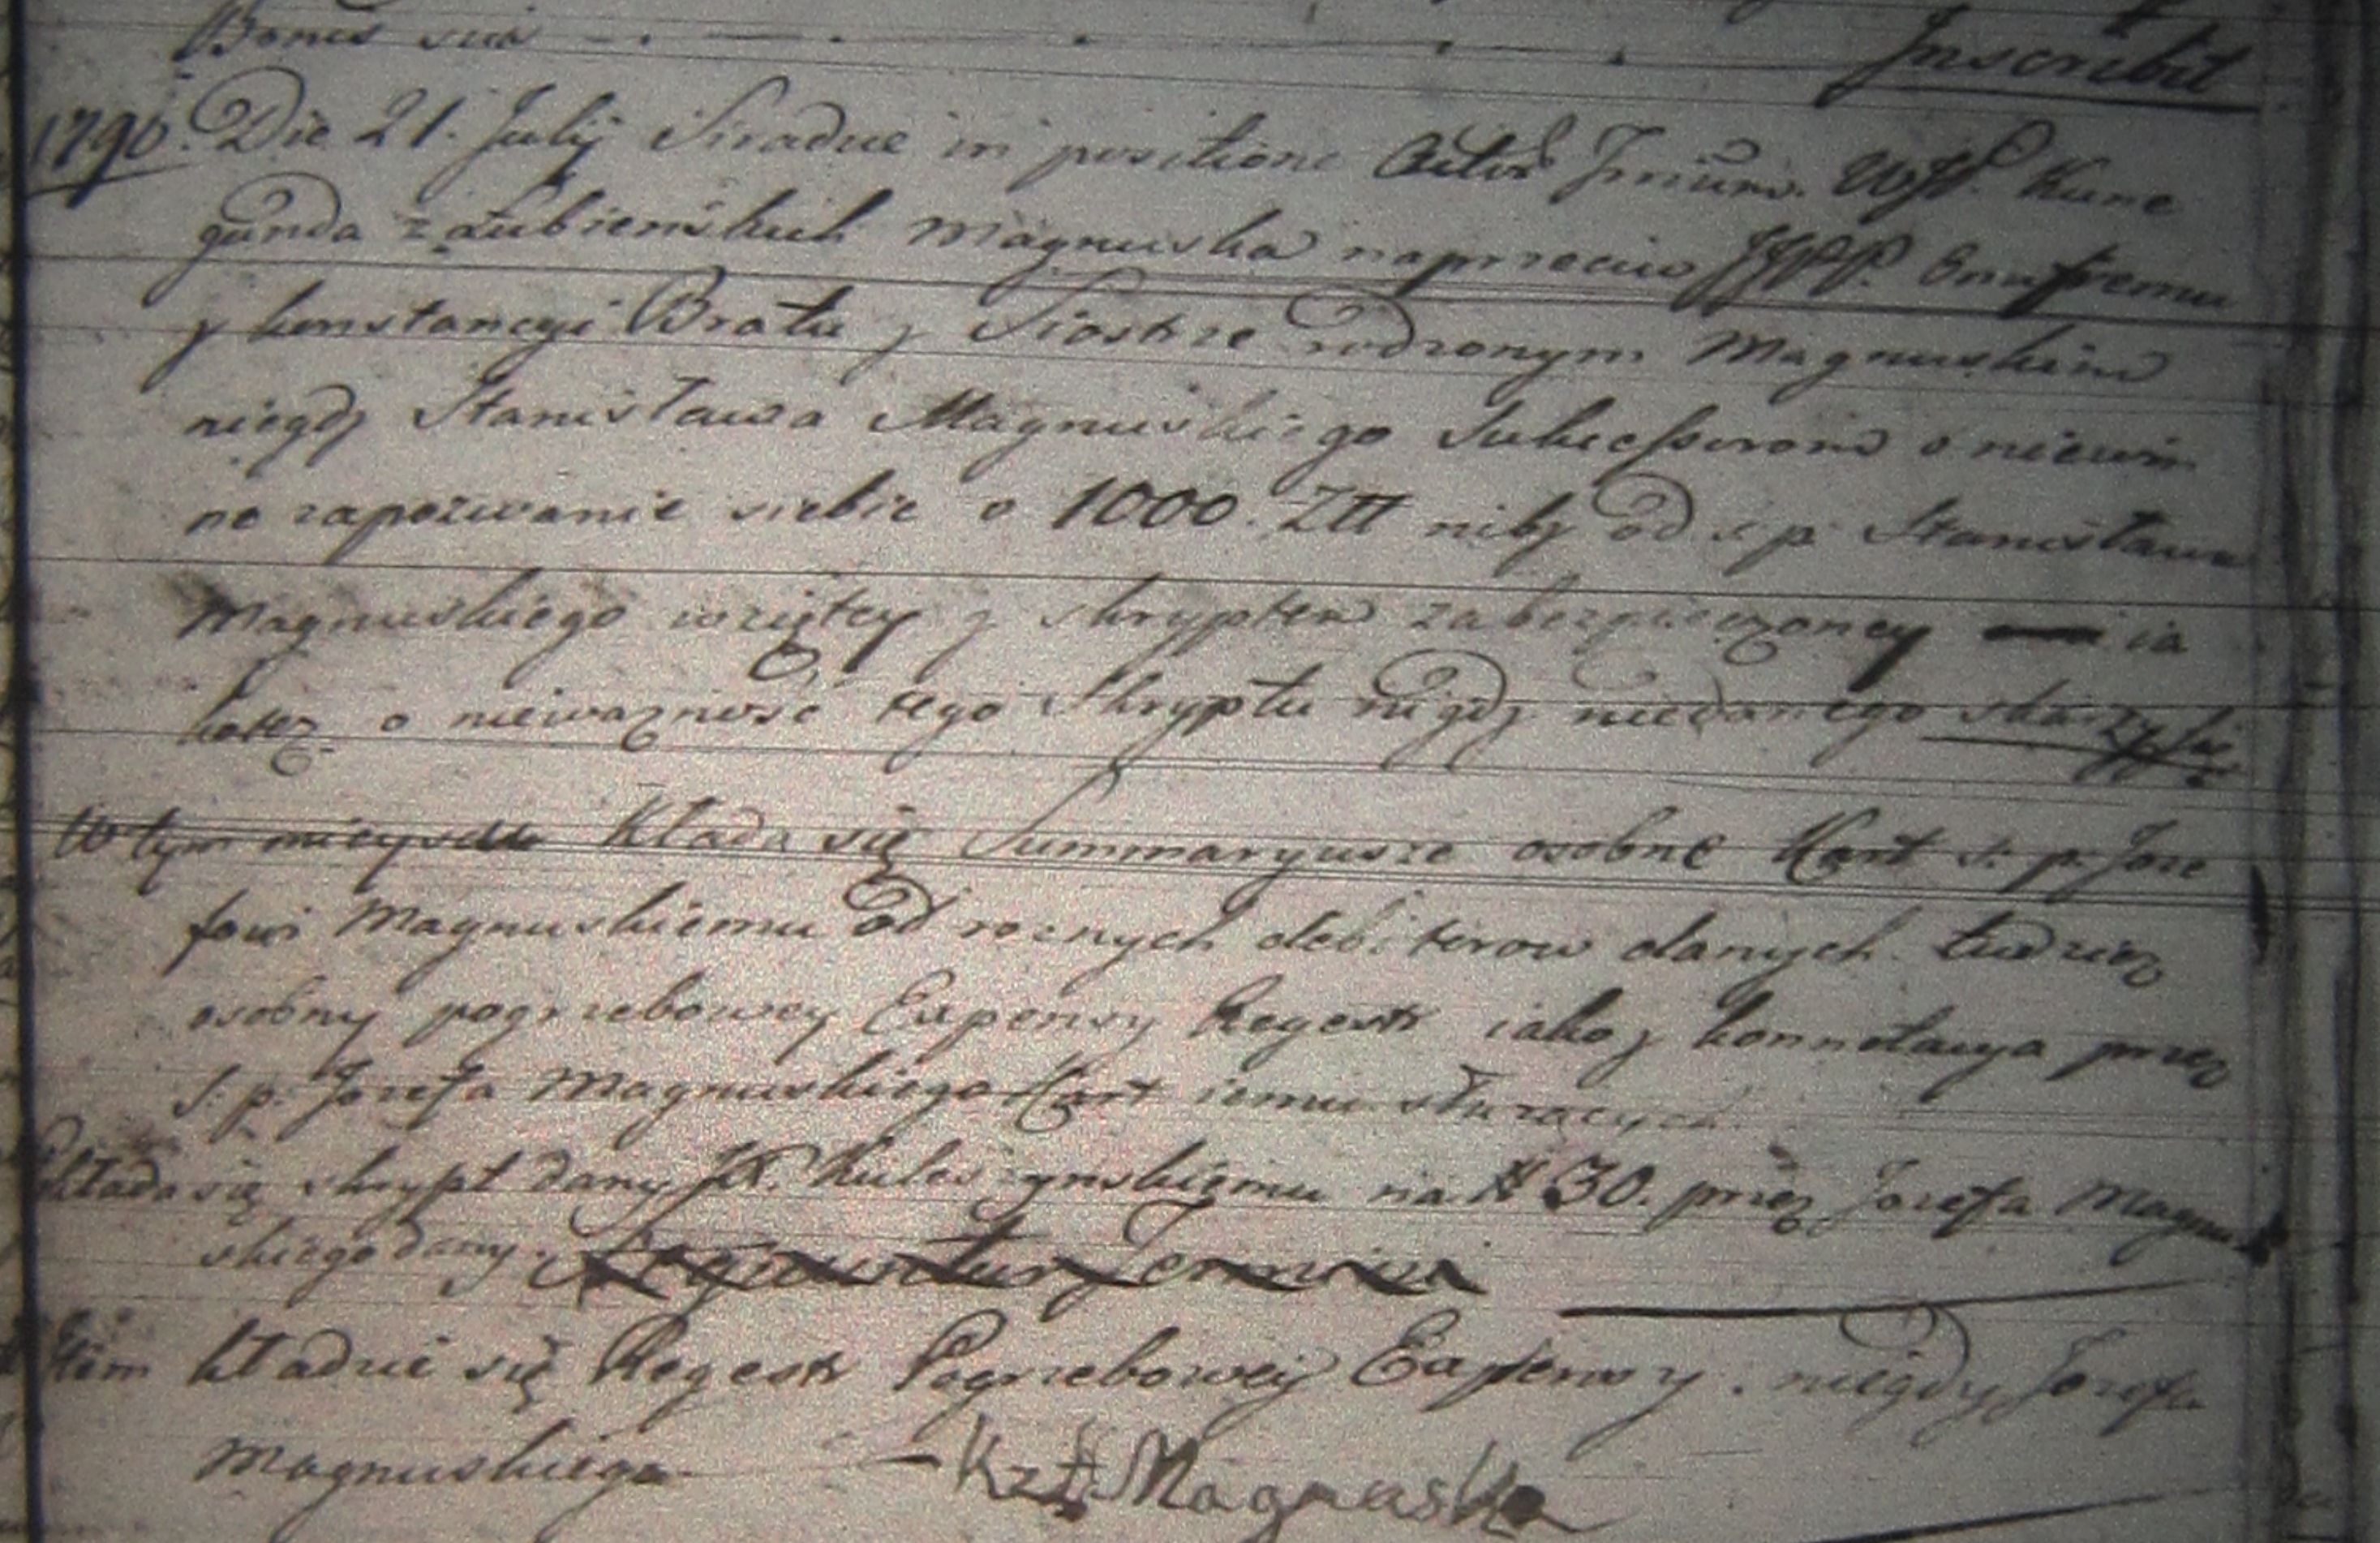 Bonis suis — . — . — . — . — . Inscribit
1790. Die 21. Julij Siradiae in positione Actor Kune
gunda z Łubienskich Magnuska naprzeciw JJPP. Onufremu
y konstancyi Bratu y Siostrze rodzonym Magnuskim
niegdy Stanisława Magnuskiego Sukcessorom o niewin
ne zapozwanie siebie o 1000. Złł niby od s. p. Stanisława
Magnuskiego wziętey y skryptem zabezpieczoney ia
kotez o niewaznosc tego Skryptu nigdy niedanego skarzy się
W tym mieyscu Kłada się Summaryusze osobne Kart s. p. Joze
fowi Magnuskiemu od roznych debitorow danych. tudziez
osobny pogrzebowey Expensy Regestr iako y konnotacya przez
s. p. Jozefa Magnuskiego Kart iemu słuzących
kłada się skrypt dany JP. Kulesczynskiemu na # 30. przez Jozefa Magnu
skiego dany. Sequuntur
Item kładzie się Regestr Pogrzebowey Expensy. niegdy Jozefa
Magnuskiego — KzŁMagnuska